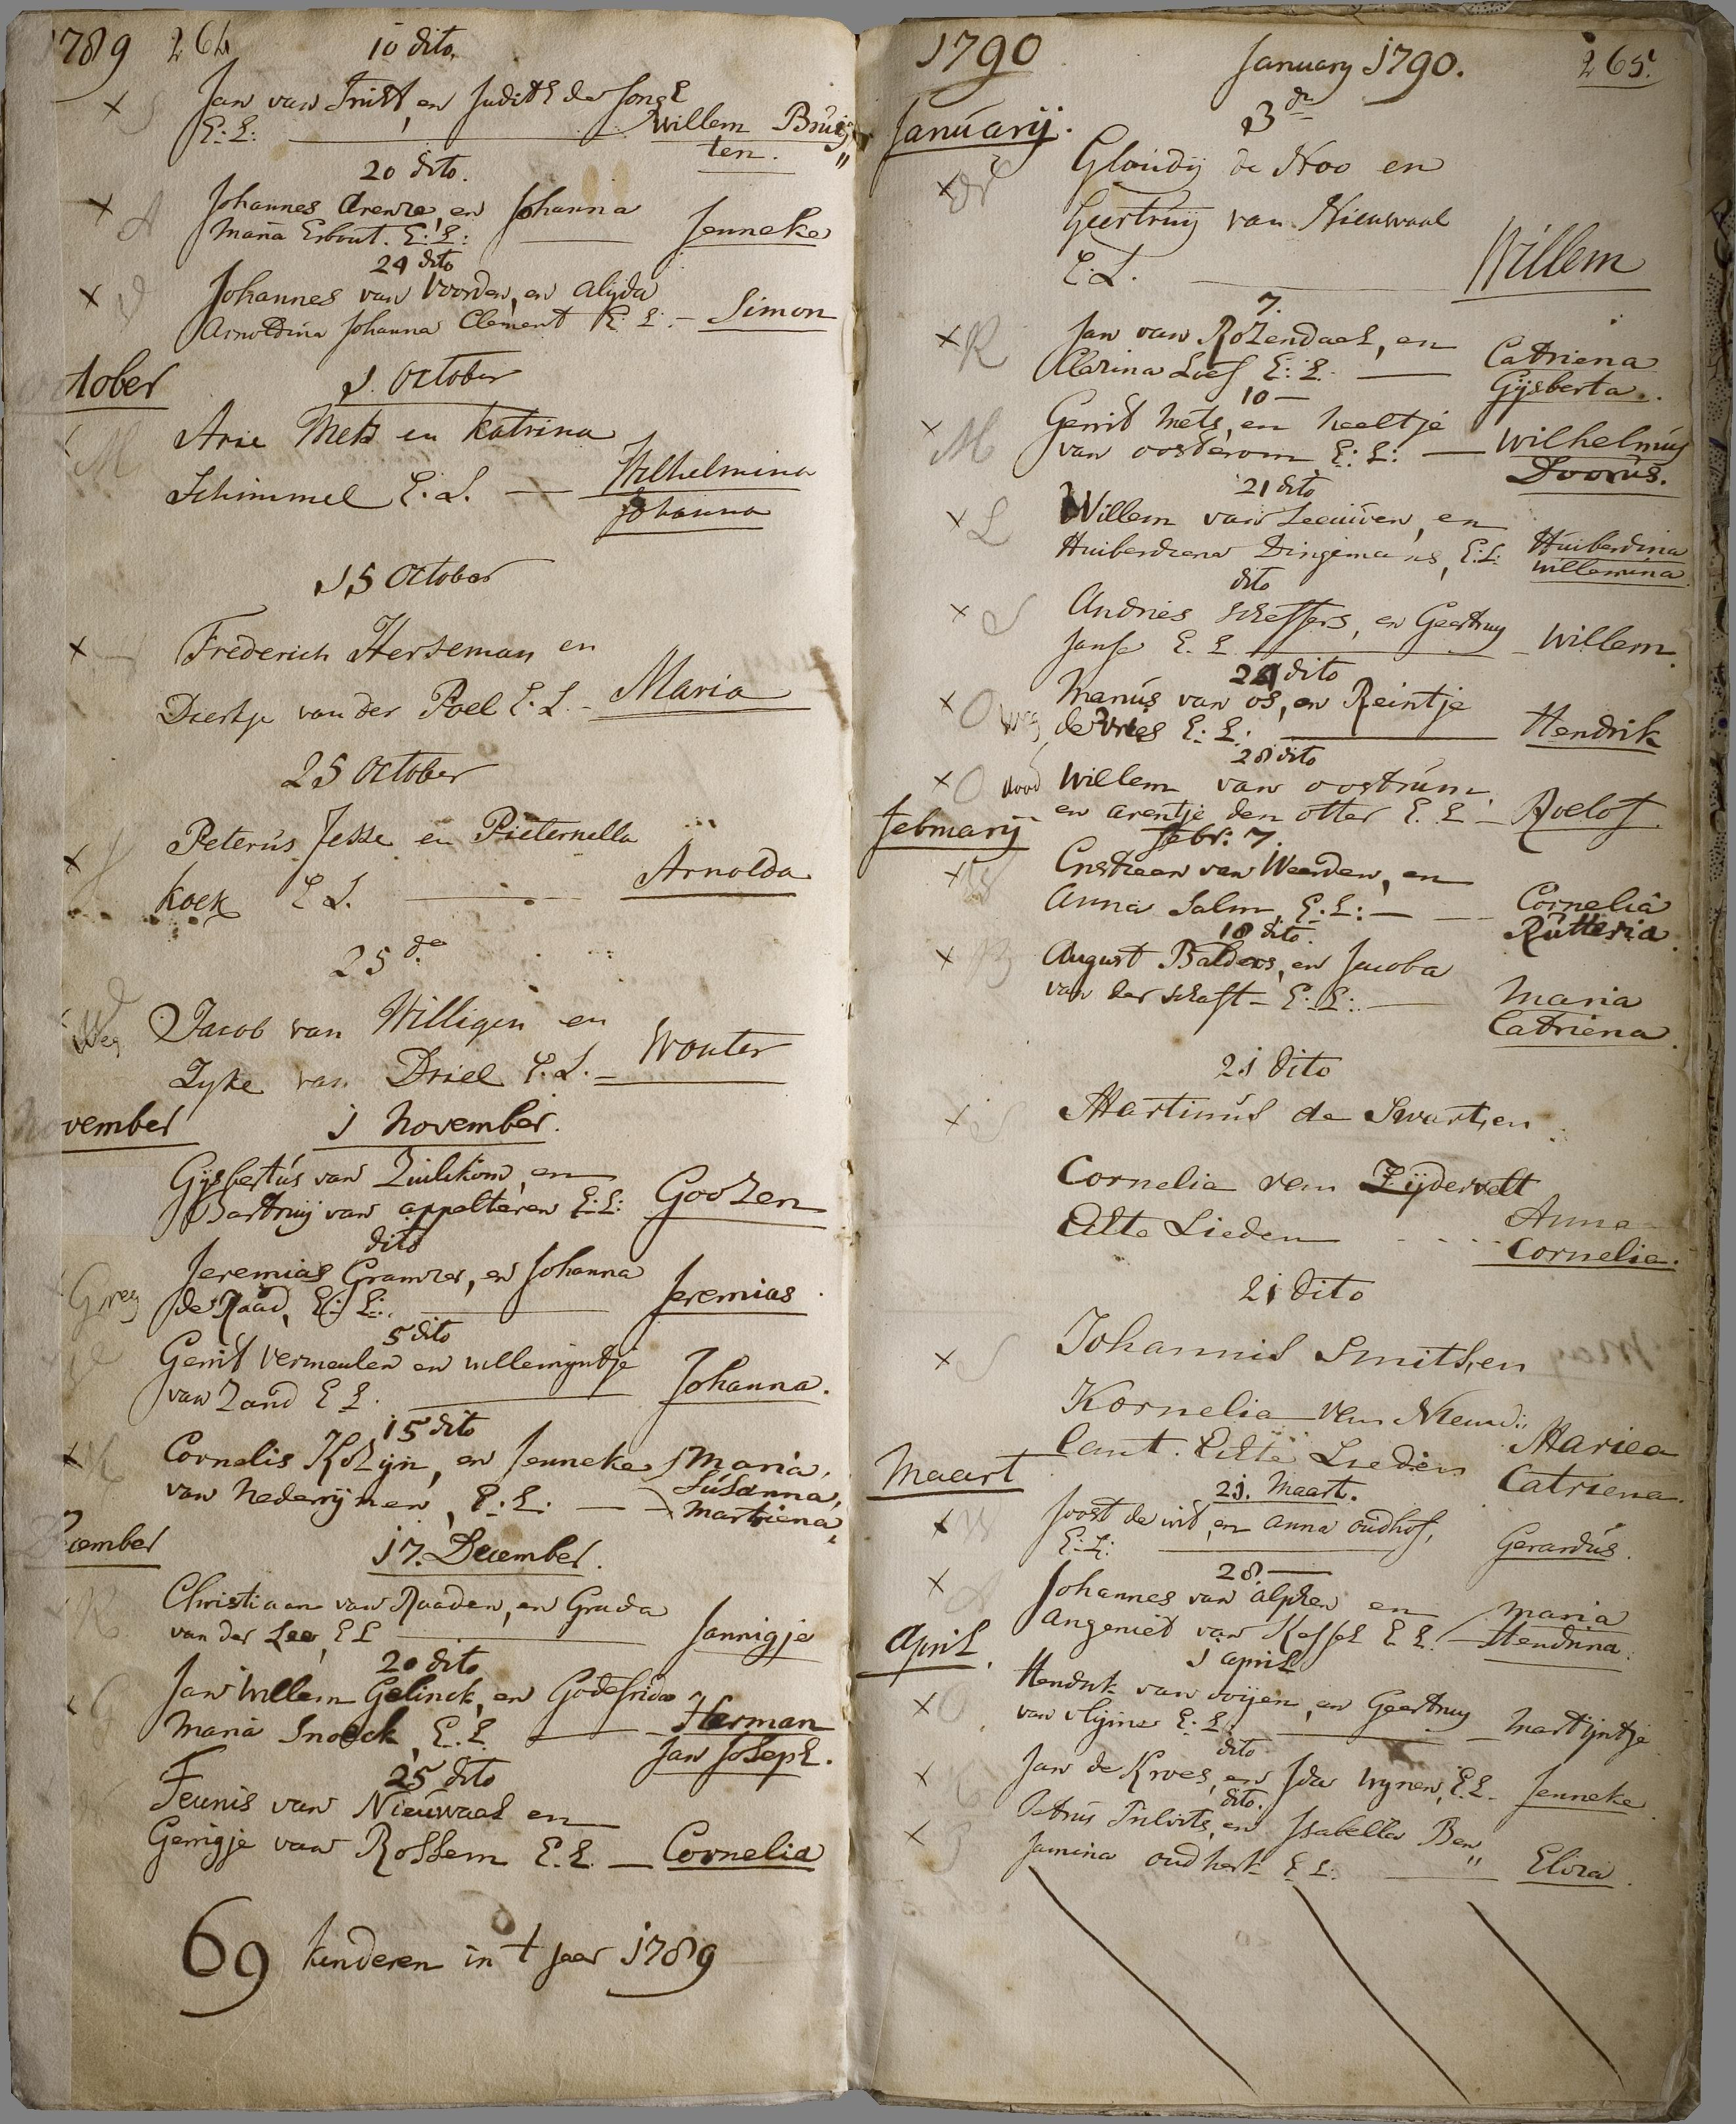 1789 264
10 dito.
Jan van Trist, en Judith de Jonge
E: L: Willem Bruij„
ten.
20 dito.
Johannes Arenze, en Johanna
Maria Erbout. E: L: Jenneke
24 dito
Johannes van Voorden, en Alijda
Arnoldina Johanna Clement E: L: Simon
tober
1. October
Arie Mets en Katrina
Schimmel E. L. Wilhelmina
Johanna
15 October
Frederich Herseman en
Dirkje van der Poel E. L. Maria
25 October
Peterus Jesse en Pieternella
Koek E L. Arnolda
25 do
Weg Jacob van Willigen en
Zyke van Driel E. L. Wouter
vember
1 November.
Gijsbertus van Zuilikom, en
Bartruij van appelteren E: L: Goozen
dito
Jeremias Gramzer, en Johanna
de Raad, E: L: Jeremias
5 dito
Gerrit Vermeulen en willemyntje
van Zand E L. Johanna.
15 dito
Cornelis Kozijn, en Jenneke Maria,
Susanna,
van Nederijnen, E. L. Martiena,
cember
17. December.
Christiaan van Raaden, en Grada
van der Lee, E L Jannigje
20 dito
Jan Willem Gelinck, en Godefrida
Maria Snoeck, E. L Herman
Jan Joseph.
25 dito
Teunis van Nieuwaal en
Gerrigje van Rossem E. L. Cornelia
69 kinderen in t jaar 1789
1790 January 1790. 265.
Januarij.
3de
Gloudij de Hoo en
Geertruij van Nieuwaal
E. L. Willem
7.
Jan van Rozendaal, en Catriena
Clasina Loef E: L. Gijsberta.
10
Gerrit Mets, en Neeltje
van oosterom E: L: Wilhelmus
Doorus.
21 dito
Willem van Leeuwen, en
Huiberdiena Dingemans, E: L: Huiberdina
willemina.
dito
Andries scheffers, en Geertruy
Janse E. L. Willem.
24 dito
Manus van os, en Reintje
weg de Vries E: L: Hendrik
28 dito
dood Willem van oostrum
en arentje den otter E. L. Roelof.
februarij
febr: 7.
Cristiaan van Weerden, en
Anna Salm, E: L: Cornelia
Rutteria.
18 dito.
August Balders, en Jacoba
van der schaft E: L: Maria
Catriena.
21 dito
Martinus de Swart, en
Cornelia van Zijdervelt
Elte Lieden Anna
Cornelia.
21 dito
Johannis Smits, en
Kornelia van Nieuw:
Cant. Elte Lieden Mariea
Catriena.
Maart
21. Maart.
Joost de wit, en Anna oudhof,
E: L: Gerardus.
28.
Johannes van alphen en
Angeniet van Kessel E L. Maria
Hendrina.
April.
1 april
Hendrik van ooijen, en Geertruy
van vlijmen E: L. Martijntje
dito
Jan de Kroes, en Ida Wynen, E. L. Jenneke.
dito.
Petrus Tulvits, en Isabella Ben„
jamina oudherk E L: Eliza.